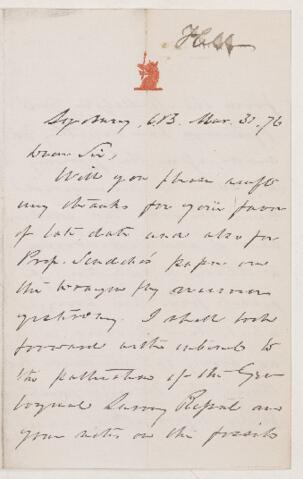 Mar. 31. 76
Dear Sir,
Will you please accept
my thanks for your favor
of late date and also for
Prof. Scudder's paper on
the
yesterday. I shall look
forward with interest to
the publication of the Geo-
logical Survey Report and
your notes on the fossils